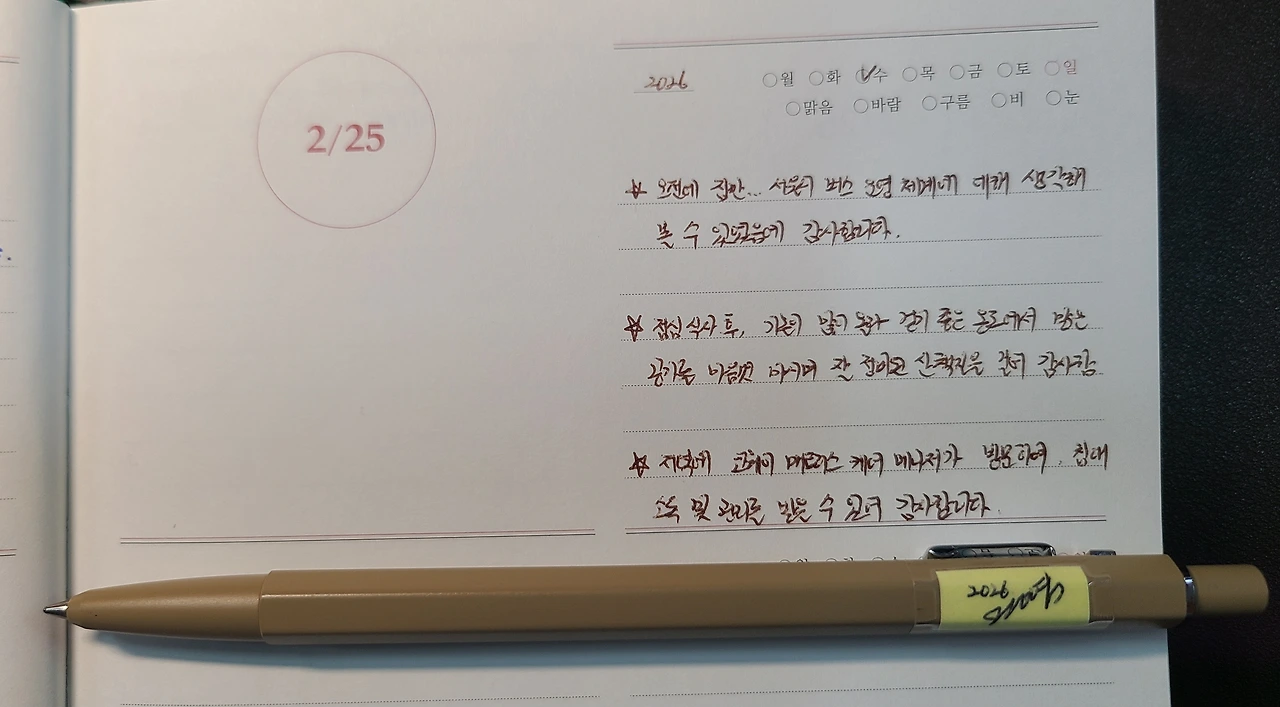 2/25
2026
월 화 수 목 금 토 일
맑음 바람 구름 비 눈
오전에 잠깐... 서울시 버스 운영 체계에 대해 생각해
볼 수 있었음에 감사합니다.
점심 식사 후, 기온이 많이 올라 걷기 좋은 온도에서 맑은
공기를 마음껏 마시며 잘 정비된 산책길을 걸어 감사함
저녁에 코웨이 매트리스 케어 매니저가 방문하여, 침대
소독 및 관리를 받을 수 있어 감사합니다.
2026